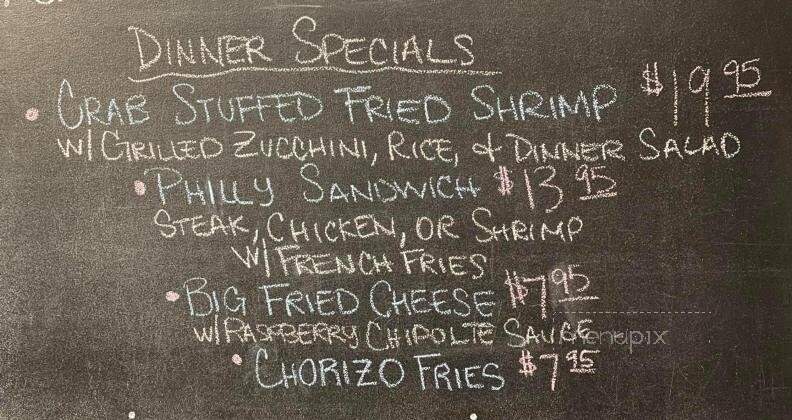 DINNER SPECIALS
• CRAB STUFFED FRIED SHRIMP $19.95
W/ GRILLED ZUCCHINI, RICE, & DINNER SALAD
• PHILLY SANDWICH $13.95
STEAK, CHICKEN, OR SHRIMP
W/ FRENCH FRIES
• BIG FRIED CHEESE $7.95
W/ RASPBERRY CHIPOLTE SAUCE
menupix
• CHORIZO FRIES $7.95